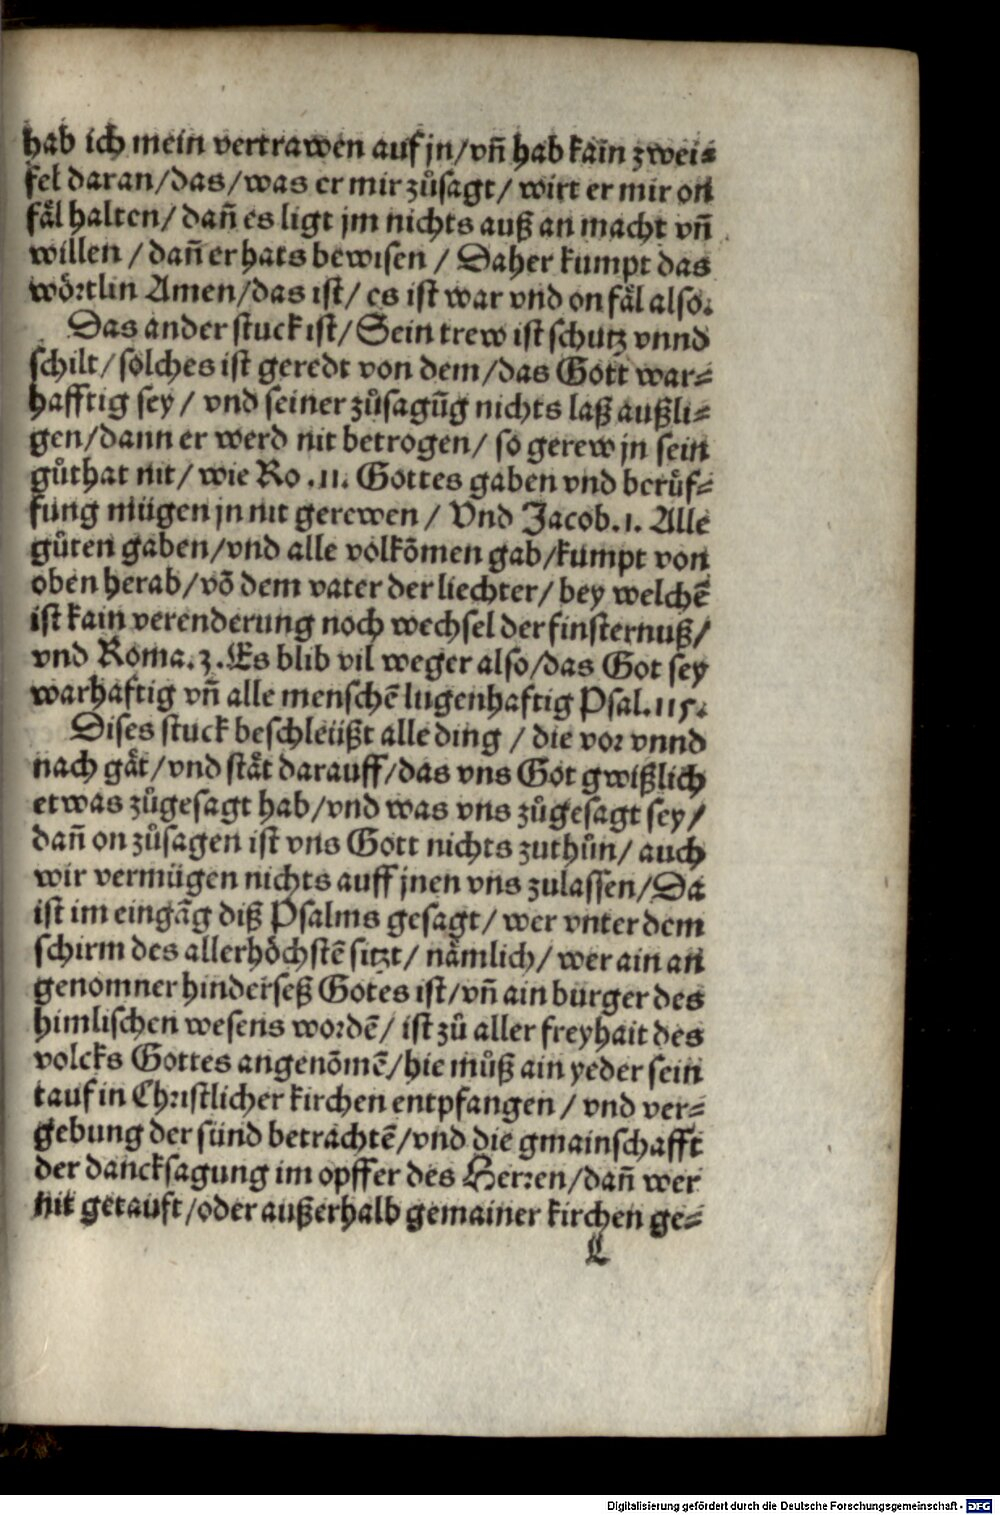 hab ich mein vertrawen auf jn/vñ hab kain zwei⸗
fel daran/das/was er mir zůsagt/ wirt er mir on
fäl halten/ dañ es ligt jm nichts auß an macht vñ
willen / dañ er hats bewisen / Daher kumpt das
wörtlin Amen/das ist/ es ist war vnd on fäl also.
Das ander stuck ist/ Sein trew ist schutz vnnd
schilt/ sölches ist geredt von dem/das Gott war⸗
hafftig sey / vnd seiner zůsagũg nichts laß außli⸗
gen/dann er werd nit betrogen/ so gerew jn sein
gůthat nit/ wie Ro .11. Gottes gaben vnd berůf⸗
fung mügen jn nit gerewen / Vnd Jacob.1. Alle
gůten gaben/vnd alle volkõmen gab/kumpt von
oben herab/võ dem vater der liechter/ bey welchẽ
ist kain verenderung noch wechsel der finsternuß/
vnd Roma.3. Es blib vil weger also/das Got sey
warhaftig vñ alle menschẽ lugenhaftig Psal.115.
Dises stuck beschleüßt alle ding / die vor vnnd
nach gät/vnd stät darauff/das vns Got gwißlich
etwas zůgesagt hab/vnd was vns zůgesagt sey/
dañ on zůsagen ist vns Gott nichts zuthůn/ auch
wir vermügen nichts auff jnen vns zulassen/Da
ist im eingãg diß Psalms gesagt/ wer vnter dem
schirm des allerhöchstẽ sitzt/ nämlich/ wer ain an
genomner hinderseß Gotes ist/vñ ain burger des
himlischen wesens wordẽ/ ist zů aller freyhait des
volcks Gottes angenõmẽ/hie můß ain yeder sein
tauf in Christlicher kirchen entpfangen / vnd ver⸗
gebung der sünd betrachtẽ/vnd die gmainschafft
der dancksagung im opffer des Herren/dañ wer
nit getauft/oder außerhalb gemainer kirchen ge⸗
L
Digitalisierung gefördert durch die Deutsche Forschungsgemeinschaft - DFG